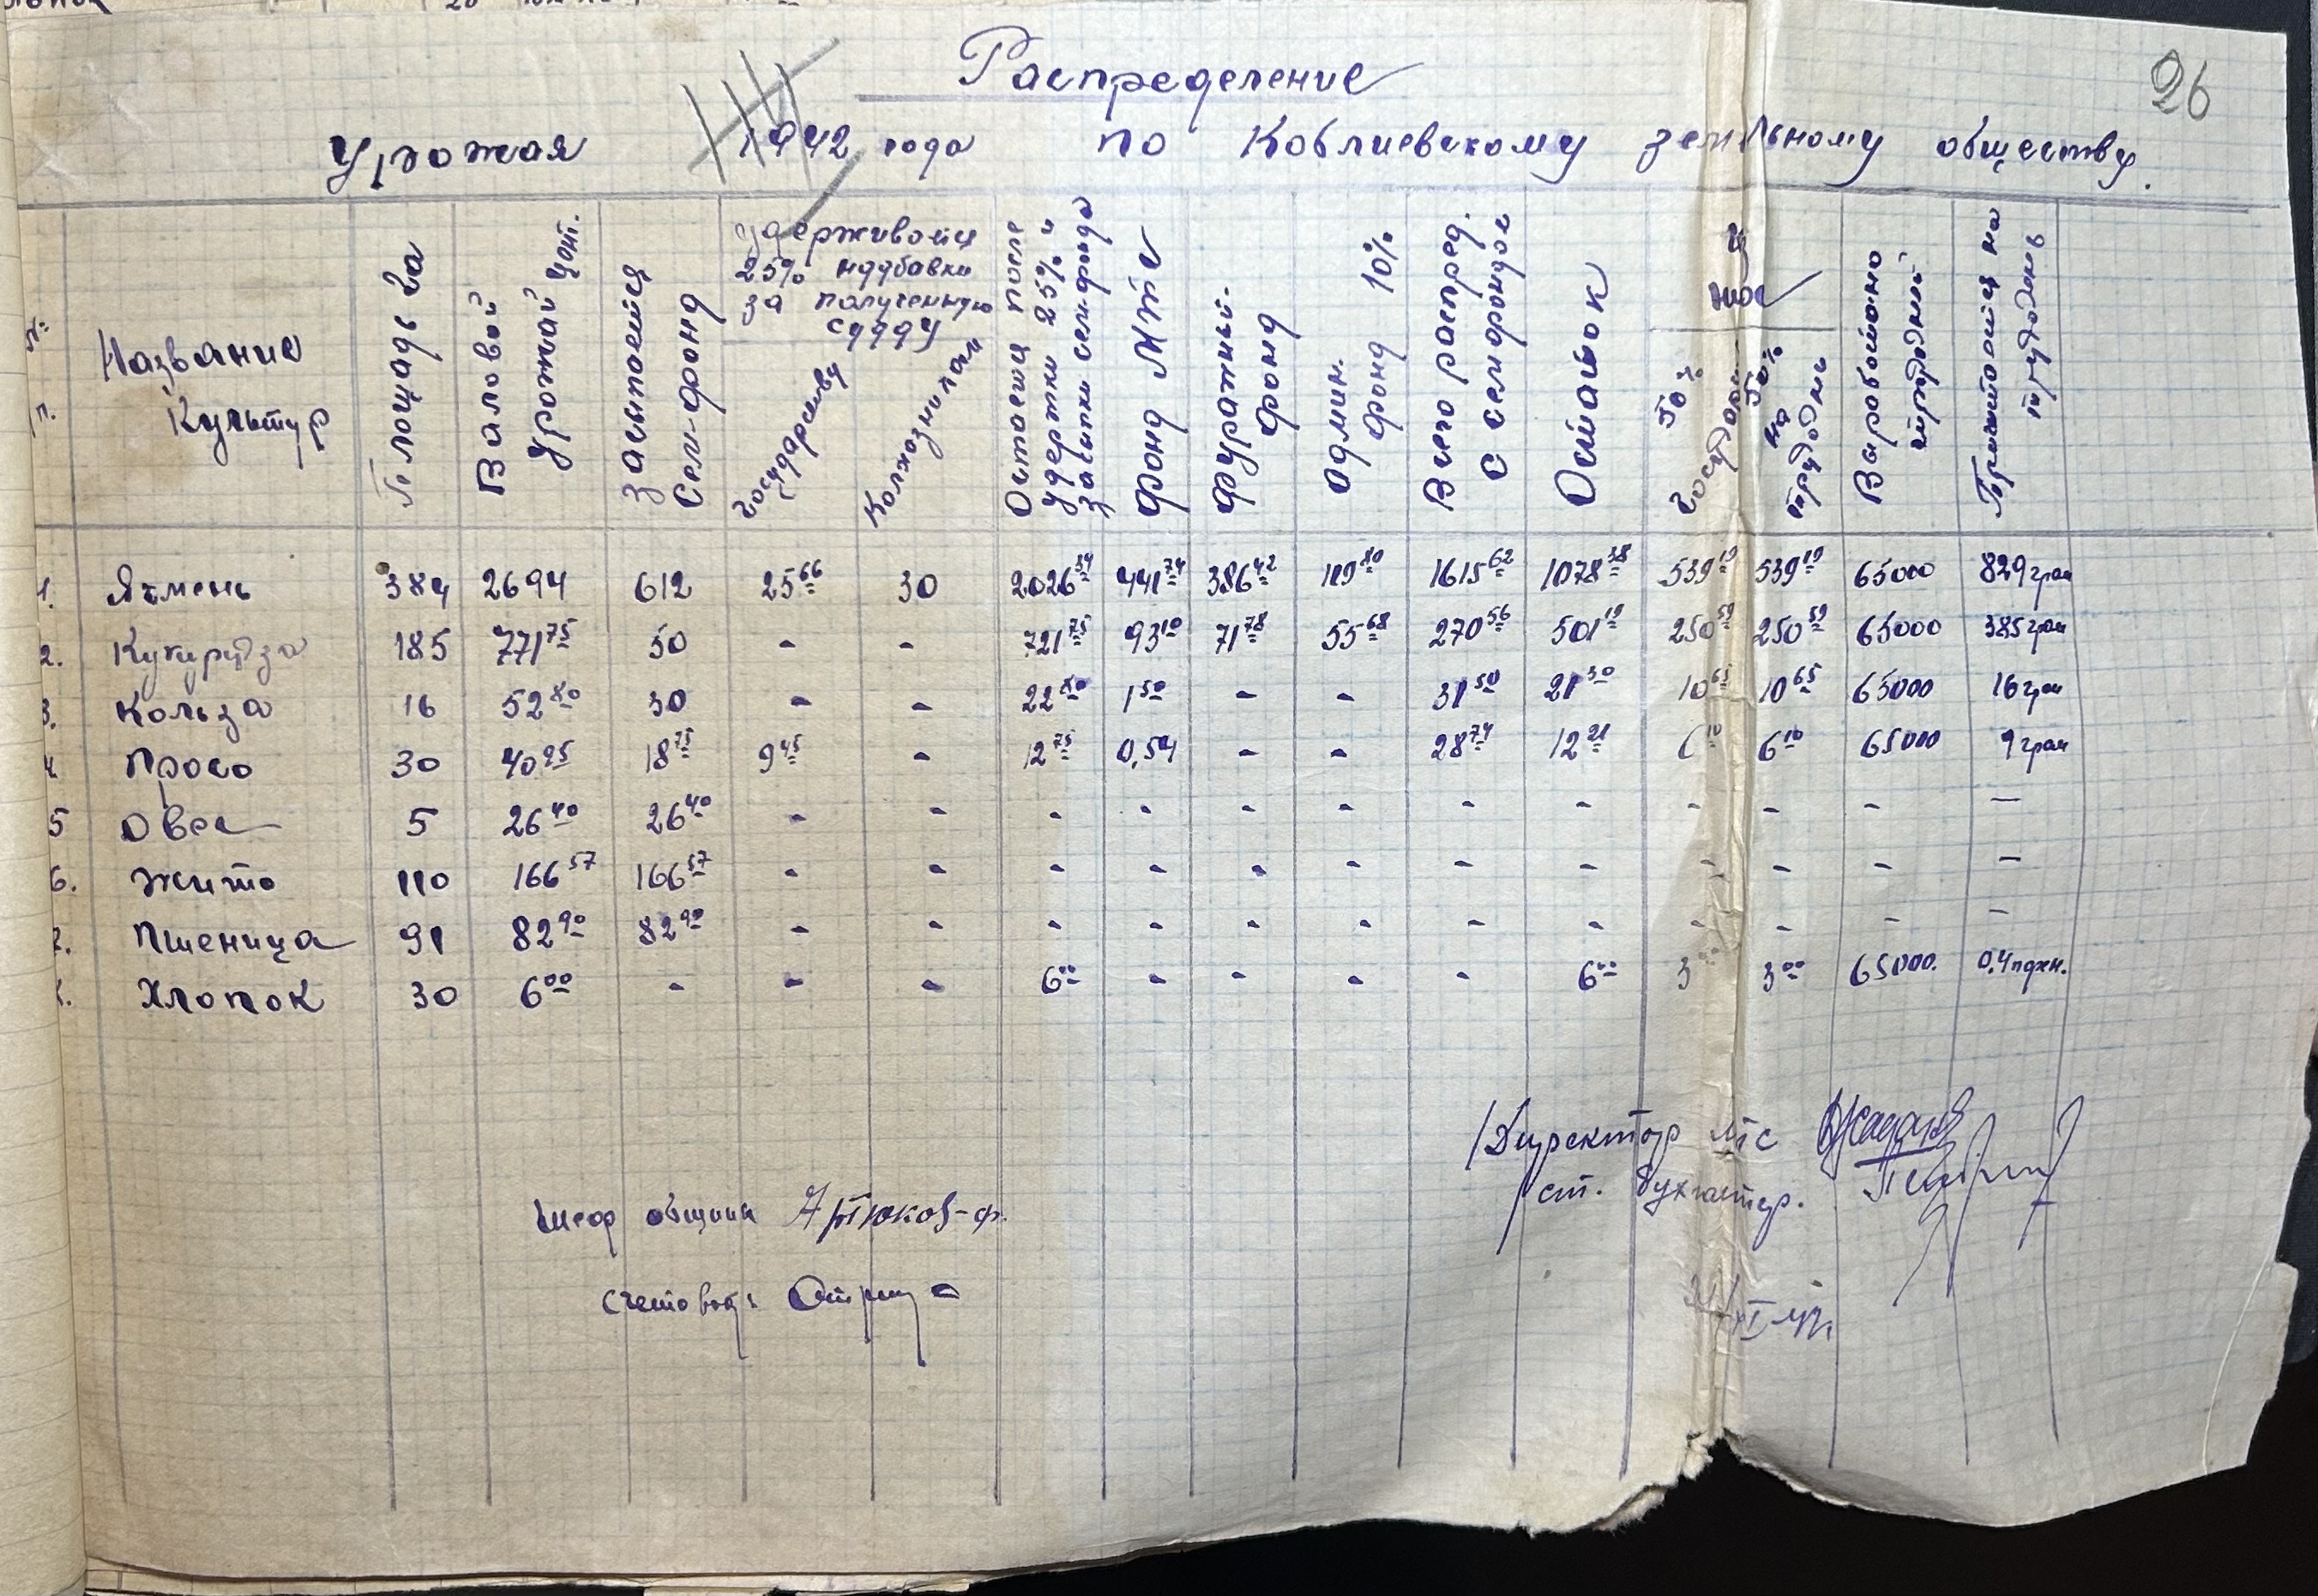 26
Распределение
Урожая 1942 года по Коблиевскому земельному обществу.
Название Культур
Площадь га
Валовой урожай цент.
Засыпается Сем-фонд
Удерживается 25% надбавки за полученную ссуду
Государству
Колхозникам
Остается после удержки 25% и засыпки семфонда
Фонд МТС
Фуражный фонд
Админ. фонд 10%
Всего распред. с семфондое
Остаток
50% государст.
50% на трудодни
Выработано трудодней
Причитается на трудодень
1. Ячмень 384 2694 612 25 66 30 2026 34 441 74 386 42 189 80 1615 62 1078 38 539 19 539 19 65000 829 грам
2. Кукурудза 185 771 75 50 - - 721 75 93 10 71 78 55 68 270 56 501 19 250 59 250 59 65000 385 грам
3. Кользa 16 52 80 30 - - 22 80 1 50 - - 31 50 21 30 10 65 10 65 65000 16 грам
4 Просо 30 40 95 18 75 9 45 - 12 75 0,54 - - 28 74 12 21 6 10 6 10 65000 9 грам
5 Овес 5 26 40 26 40 - - - - - - - - - - - -
6. Жито 110 166 57 166 57 - - - - - - - - - - - -
7. Пшеница 91 82 90 82 90 - - - - - - - - - - - -
Хлопок 30 6 00 - - - 6 00 - - - - 6 00 3 3 00 65000. 0,4
Директор МТС
ст. бухгалтер.
общины Артюков-ф.
Счетовод: